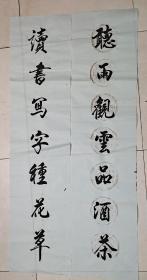 聽雨觀雲品酒茶
讀書寫字種花草